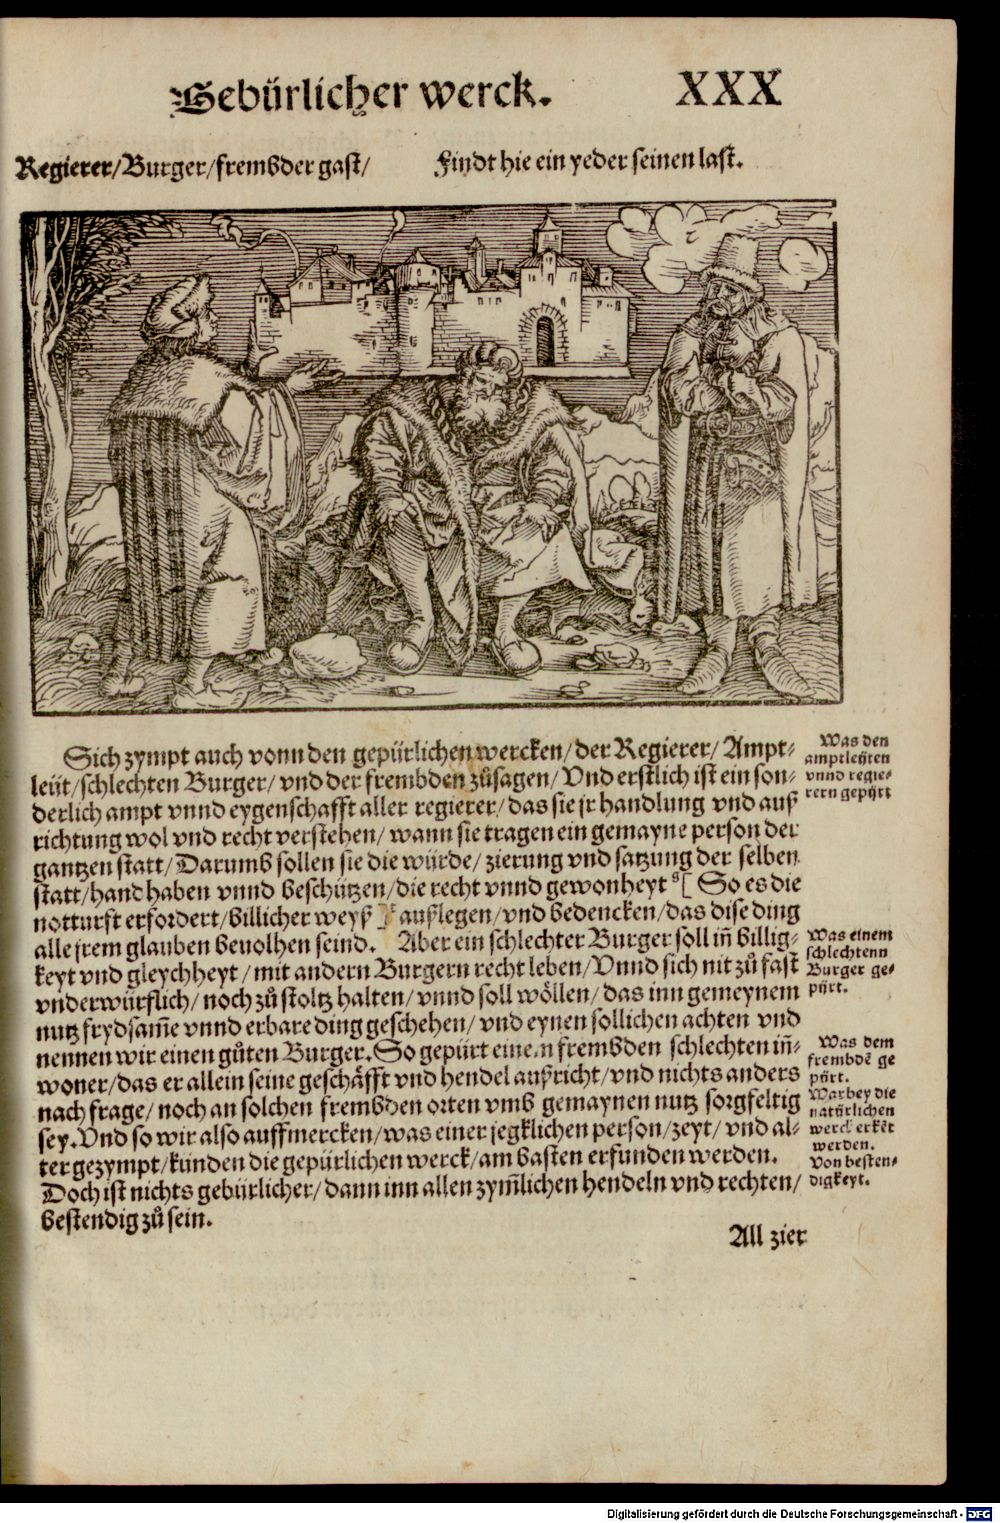 Gebürlicher werck. XXX
Regierer/ Burger/ frembder gast/ Findt hie ein yeder seinen last.
Sich zympt auch vonn den gepürlichen wercken/ der Regierer/ Ampt⸗
leüt/ schlechten Burger/ vnd der frembden zůsagen/ Vnd erstlich ist ein son⸗
derlich ampt vnnd eygenschafft aller regierer/ das sie jr handlung vnd auß
richtung wol vnd recht verstehen/ wann sie tragen ein gemayne person der
gantzen statt/ Darumb sollen sie die würde/ zierung vnd satzung der selben
statt/ handhaben vnnd beschützen/ die recht vnnd gewonheyt [ So es die
notturft erfordert/ billicher weyß ] außlegen/ vnd bedencken/ das dise ding
alle jrem glauben beuolhen seind. Aber ein schlechter Burger soll iñ billig⸗
keyt vnd gleychheyt/ mit andern Burgern recht leben/ Vnnd sich nit zů fast
vnderwürflich/ noch zů stoltz halten/ vnnd soll wöllen/ das inn gemeynem
nutz frydsam̃e vnnd erbare ding geschehen/ vnd eynen sollichen achten vnd
nennen wir einen gůten Burger. So gepürt einem frembden schlechten iñ⸗
woner/ das er allein seine geschäfft vnd hendel außricht/ vnd nichts anders
nach frage/ noch an solchen frembden orten vmb gemaynen nutz sorgfeltig
sey. Vnd so wir also auffmercken/ was einer jegklichen person/ zeyt/ vnd al⸗
ter gezympt/ künden die gepürlichen werck/ am basten erfunden werden.
Doch ist nichts gebürlicher/ dann inn allen zym̃lichen hendeln vnd rechten/
bestendig zů sein.
Was den
amptleüten
vnnd regie⸗
rern gepürt
Was einem
schlechtenn
Burger ge⸗
pürt.
Was dem
frembdẽ ge
pürt.
Warbey die
natürlichen
werck erkẽt
werden.
Von besten⸗
digkeyt.
All zier
Digitalisierung gefördert durch die Deutsche Forschungsgemeinschaft - DFG